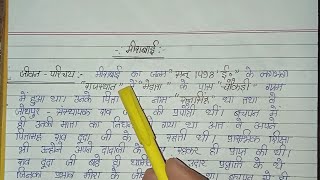 -: मीराबाई :-
जीवन - परिचय :- मीराबाई का जन्म "सन् 1498 ई०" के लगभग
"राजस्थान" में "मेड़ता" के पास "चौकड़ी" ग्राम
में हुआ था। उनके पिता नाम रत्नसिंह था तथा वे
जोधपुर संस्थापक राव की प्रपौत्री थीं। बचपन में
ही उनकी माता का निधन हो गया था अतः वे अपने
पितामह राव दूदा जी के रहती थीं। प्रारम्भिक शिक्षा
भी उन्होंने अपने दादाजी के रहकर ही प्राप्त की थी।
राव दूदा जी बड़े ही उदार प्रवृत्ति के थे
जिनका प्रभाव मीरा के